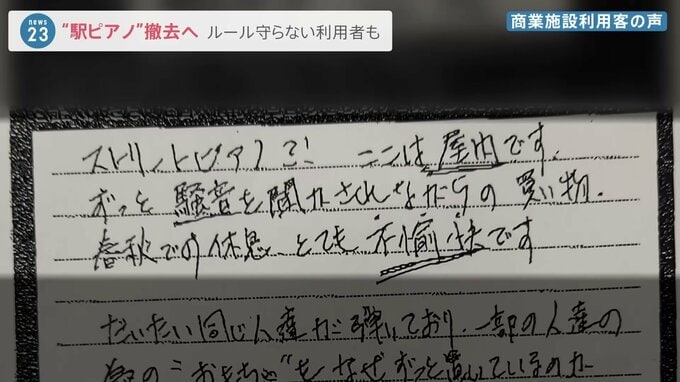 news 23
“駅ピアノ”撤去へ ルール守らない利用者も
商業施設利用客の声
ストリートピアノ?! ここは屋内です.
ずっと騒音を聞かされながらの買い物.
春秋での休息 とても不愉快です
だいたい同じ人達が弾いており.一部の人達の
為の“おもちゃ”をなぜずっと置いているのか